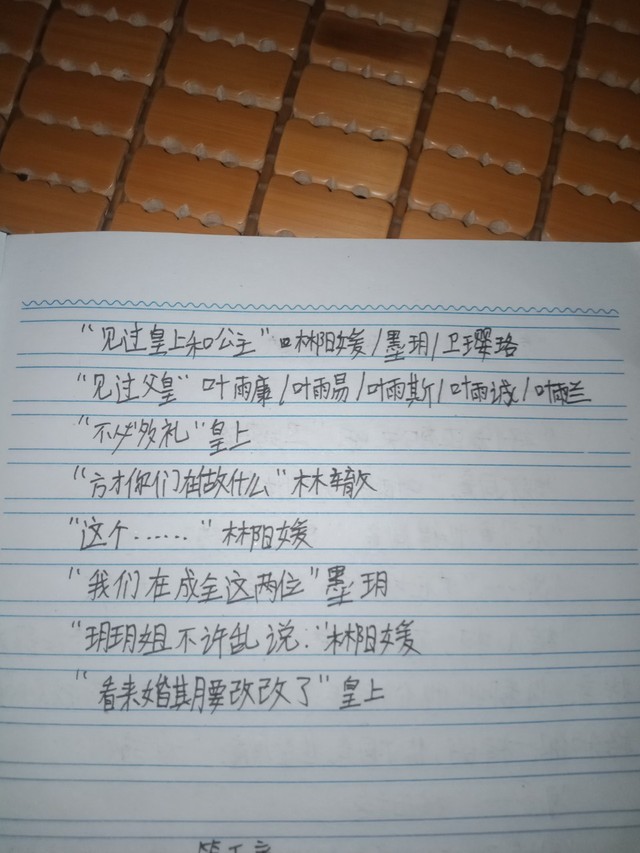 “见过皇上和公主”林阳媛/墨玥/卫璎珞
“见过父皇”叶雨廉/叶雨易/叶雨斯/叶雨诚/叶雨兰
“不必多礼”皇上
“方才你们在做什么”林
“这个……”林阳媛
“我们在成全这两位”墨玥
“玥玥姐不许乱说.”林阳媛
“看来婚期要改改了”皇上